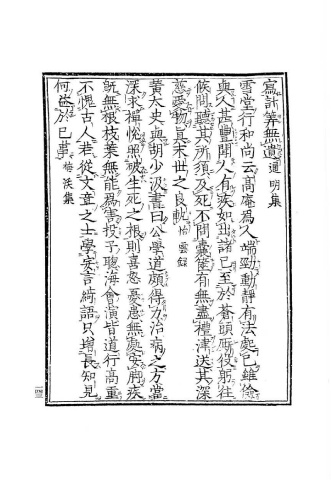 寫計筭無遺通明集
雪堂行和尚云高庵為人端勁動靜有法處已雖儉
與人甚豐聞人有疾如出諸已至於蒼頭厮役躬往
候問聽其所須及死不問囊篋有無盡禮津送其深
慈愛物真末世之良軌怡雲録
黄太史與胡少汲書曰公學道頗得力治病之方當
深求禪悅照破生死之根則喜怒憂患無處安脚疾
既無根枝葉無能為害投子聦海會演皆道行高重
不愧古人若從文章之士學妄言綺語只增長知見
何益於已事怡沃集